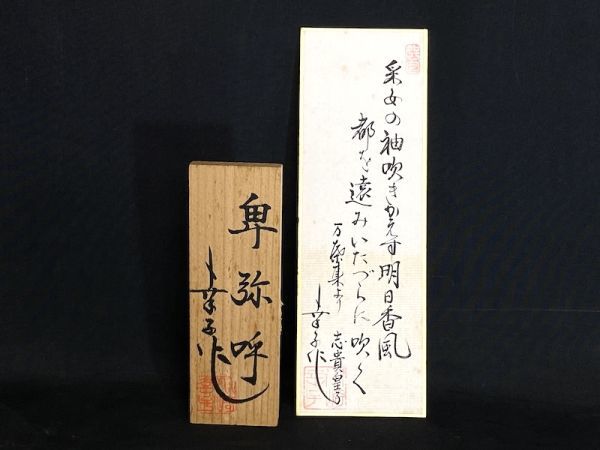 采女の袖吹きかえす明日香風
都を遠みいたづらに吹く
万葉集より 志貴皇子
幸子作
卑弥呼
幸子作